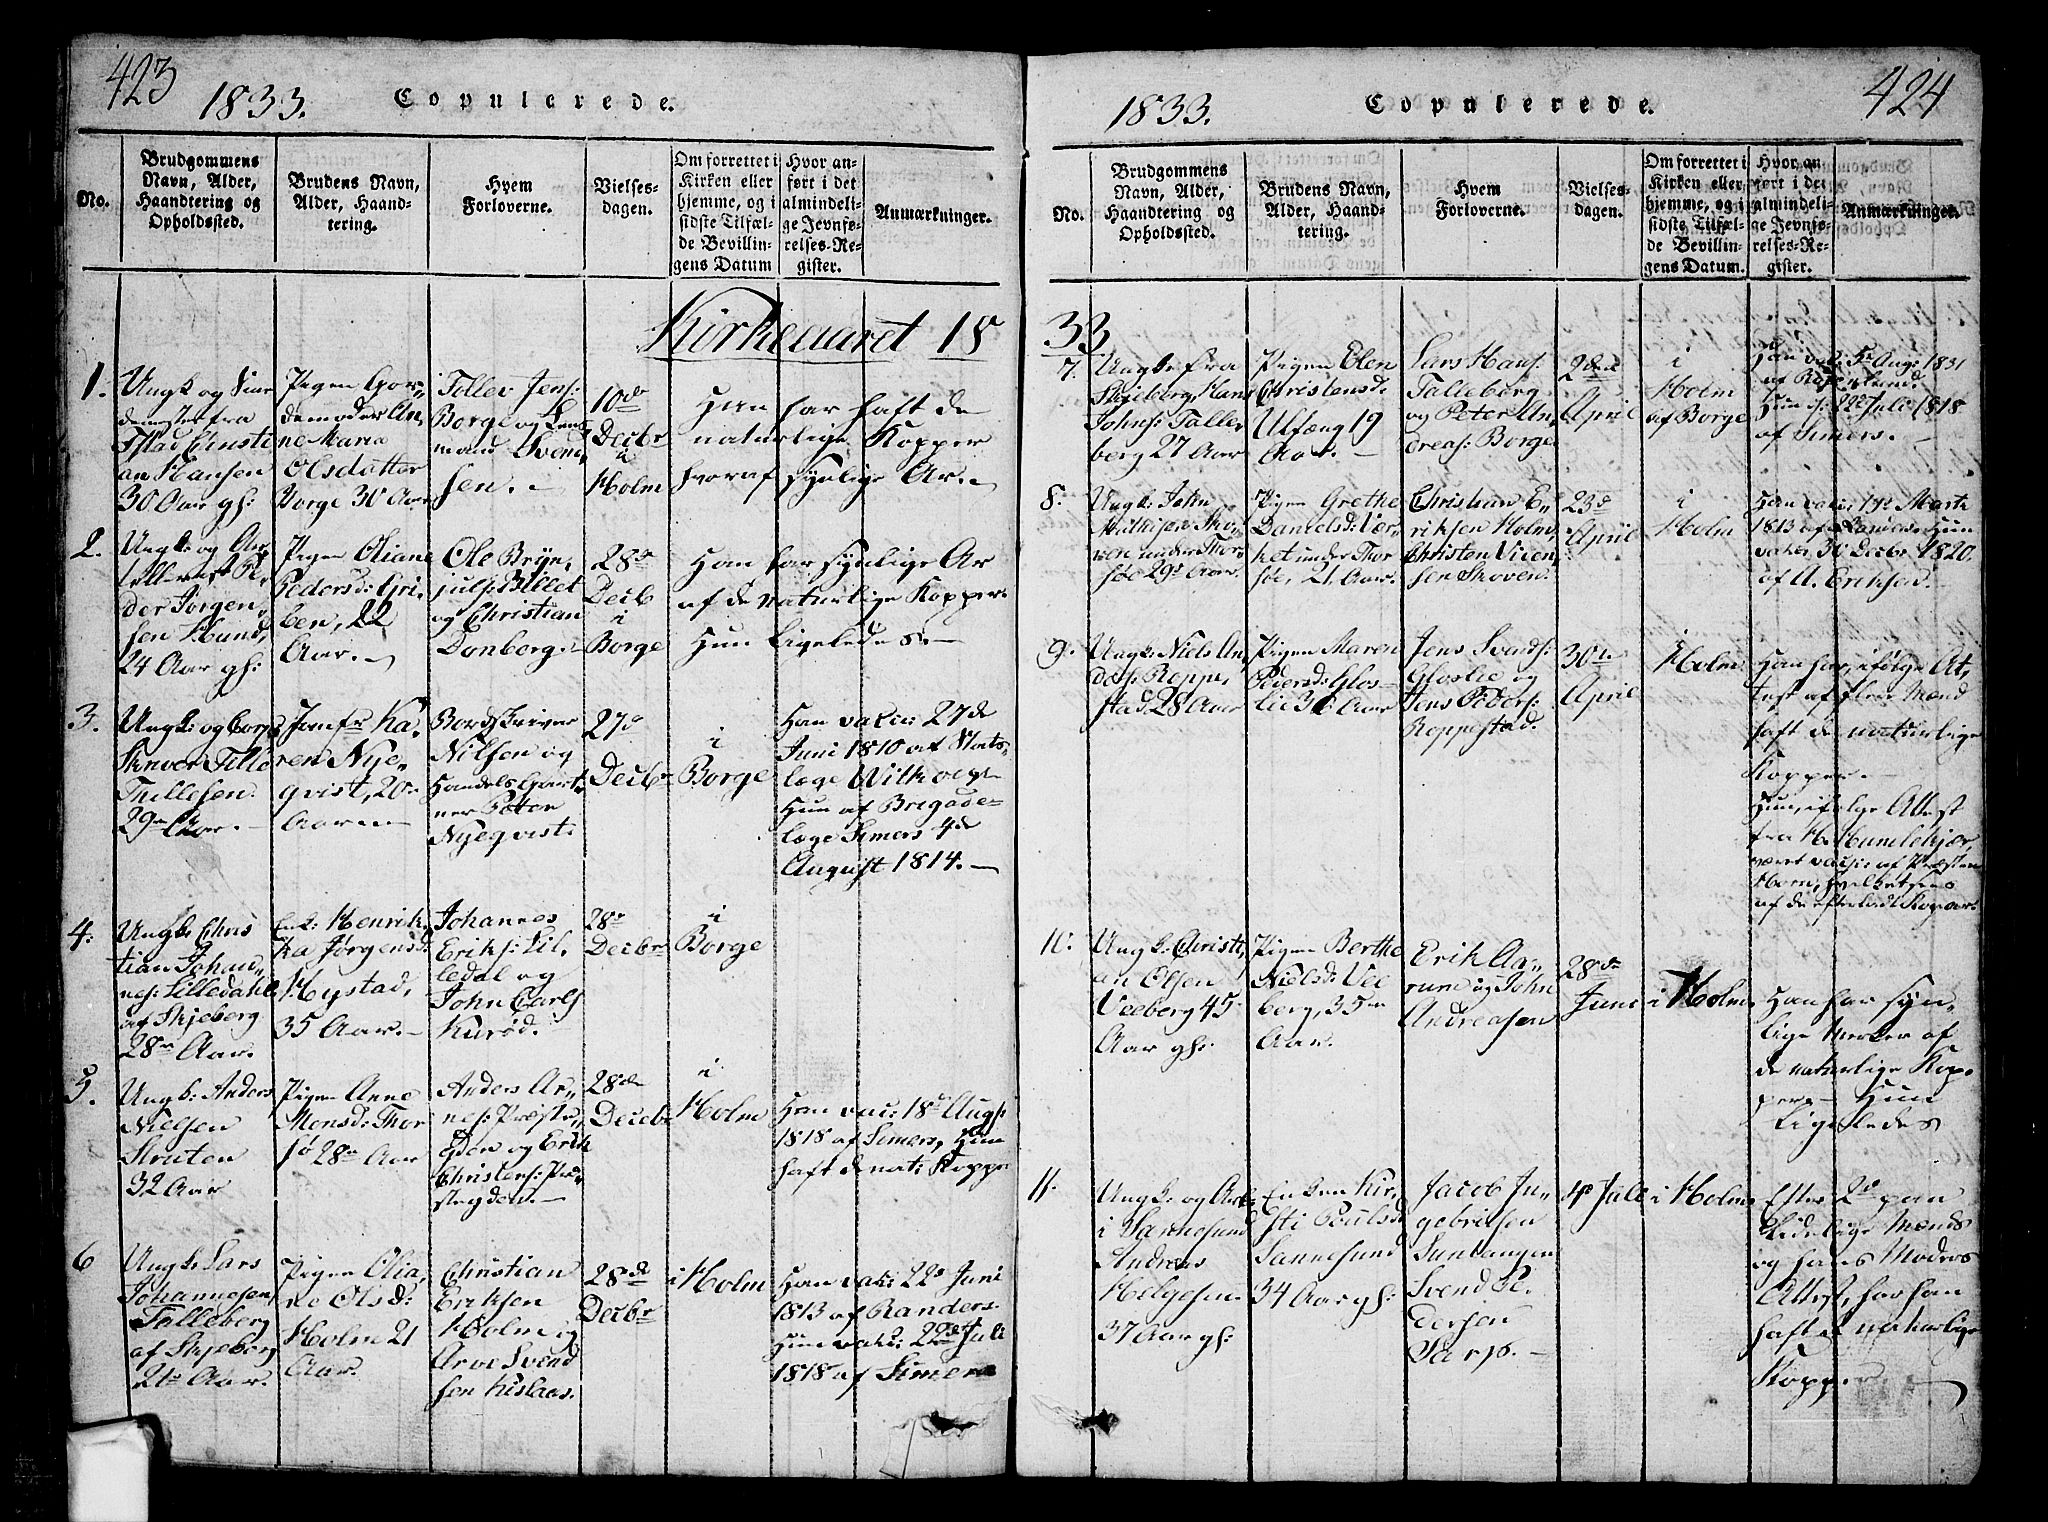 423
1833.
Copulerede.
No.
Brudgommens
Navn, Alder,
Haandtering og
Opholdssted.
Brudens Navn,
Alder, Haand-
tering.
Hvem
Forloverne.
Vielses-
dagen.
Om forrettet i
Kirken eller
hjemme, og i
sidste Tilfæl-
de Bevillin-
gens Datum
Hvor an-
ført i det
almindeli-
ge Jevnfø-
relses-Re-
gister.
Anmærkninger.
Kirkeaaret 18
1.
Ungk og
fra
Christi
an Hansen
30 Aar gh:
Pigen Gor
demoder An
ne Maria
Olsdatter
Borge 30 Aar
Tollev Jens:
Borge og Lens
mand Svend
sen.
10de
Decbr
i
Holm
Han har haft de
naturlige Kopper
hvoraf synlige Ar.
2.
Ungk: og Ar
tillerist Pe
der Jørgen
sen Hund,
24 Aar gh:
Pigen Oliane
Pedersd: Gri
ben, 22
Aar.
Ole Bryn
julfs:
og Christian
Donberg.
28de
Decb
i
Borge
Han har synlige Ar
af de naturlige Kopper
Hun Ligeledes
3.
Ungk: og Corps
Skriver Tille
Thillesen
29 Aar.
Jomfr Ka
ren Nye
qvist, 20
Aar
Bordskriver
Nilsen og
Handels Gart
ner Peter
Nyeqvist
27de
Decbr
i
Borge
Han vacci: 27de
Juni 1810 af Stats
læge
Hun af Brigade-
læge Simers 4de
August 1814.
4.
Ungk: Chris
tian Johan
nes: Lilledahl
af Skjeberg
28 Aar.
Enk: Henrik
ka Jørgensd:
Hystad,
35 Aar.
Johannes
Eriks: Lil
ledal og
John Carls
Kurød.
28de
Decbr
i
Borge
5.
Ungk: Anders
Nielsen
Struten
32 Aar
Pigen Anne
Monsd: Thor
sø 28 Aar
Anders Ar
nes: Præste
gden og Erik
Christens: Præ
stegden
28de
Decbr
i
Holm
Han vac: 18de Aug:
1818 af Simers, Hun
haft de nat: Kopper
6
Ungk: Lars
Johannesen
Talleberg
af Skjeberg
21 Aar.
Pigen Olia
ne Olsd:
Holm 21
Aar.
Christian
Eriksen
Holm og
Arve Svend
sen Kislaas.
28de
Decbr
i Holm
Han vac: 22de Juni
1813 af Randers.
Hun vac: 22de Juli
1818 af Simers
424
1833.
Copulerede.
No.
Brudgommens
Navn, Alder,
Haandtering og
Opholdssted.
Brudens Navn,
Alder, Haand-
tering.
Hvem
Forloverne.
Vielses-
dagen.
Om forrettet i
Kirken eller
hjemme, og i
sidste Tilfæl-
de Bevillin-
gens Datum.
Hvor an
ført i det
almindeli-
ge Jevnfø-
relses-Re-
gister.
Anmærkninger.
33
7.
Ungk: fra
Skjeberg, Hans
Johns: Talle
berg 27 Aar
Pigen Elen
Christensd:
Ulfæng 19
Aar.
Lars Hans:
Talleberg
og Peter An
dreas: Borge
28de
April
i
Holm
af Borge
Han vac: 5te Aug: 1831
af
Hun i 22de Juli 1818
af Simers.
8.
Ungk: John
Sko
ven under Thor
søe 29 Aar.
Pigen Grethe
Danielsd: Vær
ket under Thor
søe, 21 Aar.
Christian E
riksen Holm,
Christen Vien
sen Skoven.
23de
April
i
Holm
Han vac: 17de Marti
1813 af Randers. Hun
vac: 30 Decbr 1820.
af A. Eriksen.
9.
Ungk: Niels An
ders: Roppe
stad 28 Aar
Pigen Maren
Peders: Glos
lie 30 Aar
Jens Svends:
Gloslie og
Jens Peders:
Roppestad.
30te
April
i
Holm
Han har, ifølge At
test af flere Mænd
haft de naturlige
Kopper.
Hun, ifølge Attest
fra H. Humlekjær,
været vacci: af Præsten
Horn, hvilket sees
af de efterladte Kopar
10.
Ungk: Christi
an Olsen
Veeberg 45
Aar gh:
Pigen Berthe
Nielsd: Vee
berg, 35
Aar.
Erik Aa
rum og John
Andreasen
28de
Juni
i Holm
Han har syn
lige Mærker af
de naturlige Kop
per Hun
Ligeledes
11.
Ungk: og Arb
i Sannesund
Andreas
Helgesen
37 Aar gh:
Enken Kir
sti Poulsd
Sannesund
34 Aar gh:
Jacob In
gebritsen
Suntangen
Svend Pe
dersen
Sarps.
4de Juli
i Holm
Efter 2de paa
lidelige Mænds
og hans Moders
Attest, har han
haft de naturlige
Kopper